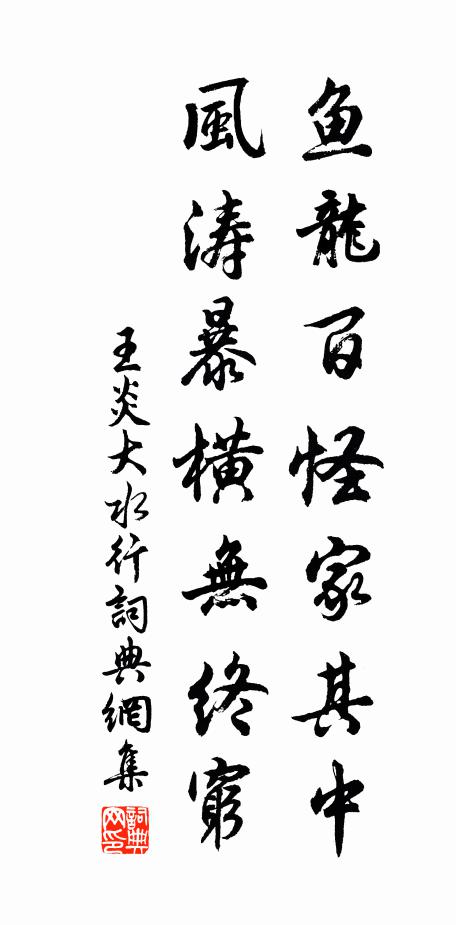 鱼龍百怪家其中
風涛暴横無终窮
王炎大水行詞典網集
詞典网印